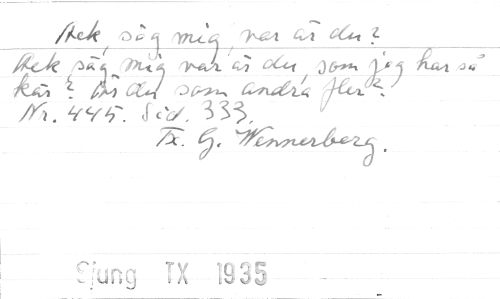 Ack, säg mig, var är du?
Ack säg mig var är du, som jag har så
kär? Är du som andra fler?
Nr. 445. Sid. 333.
Tx. G. Wennerberg.
Sjung TX 1935